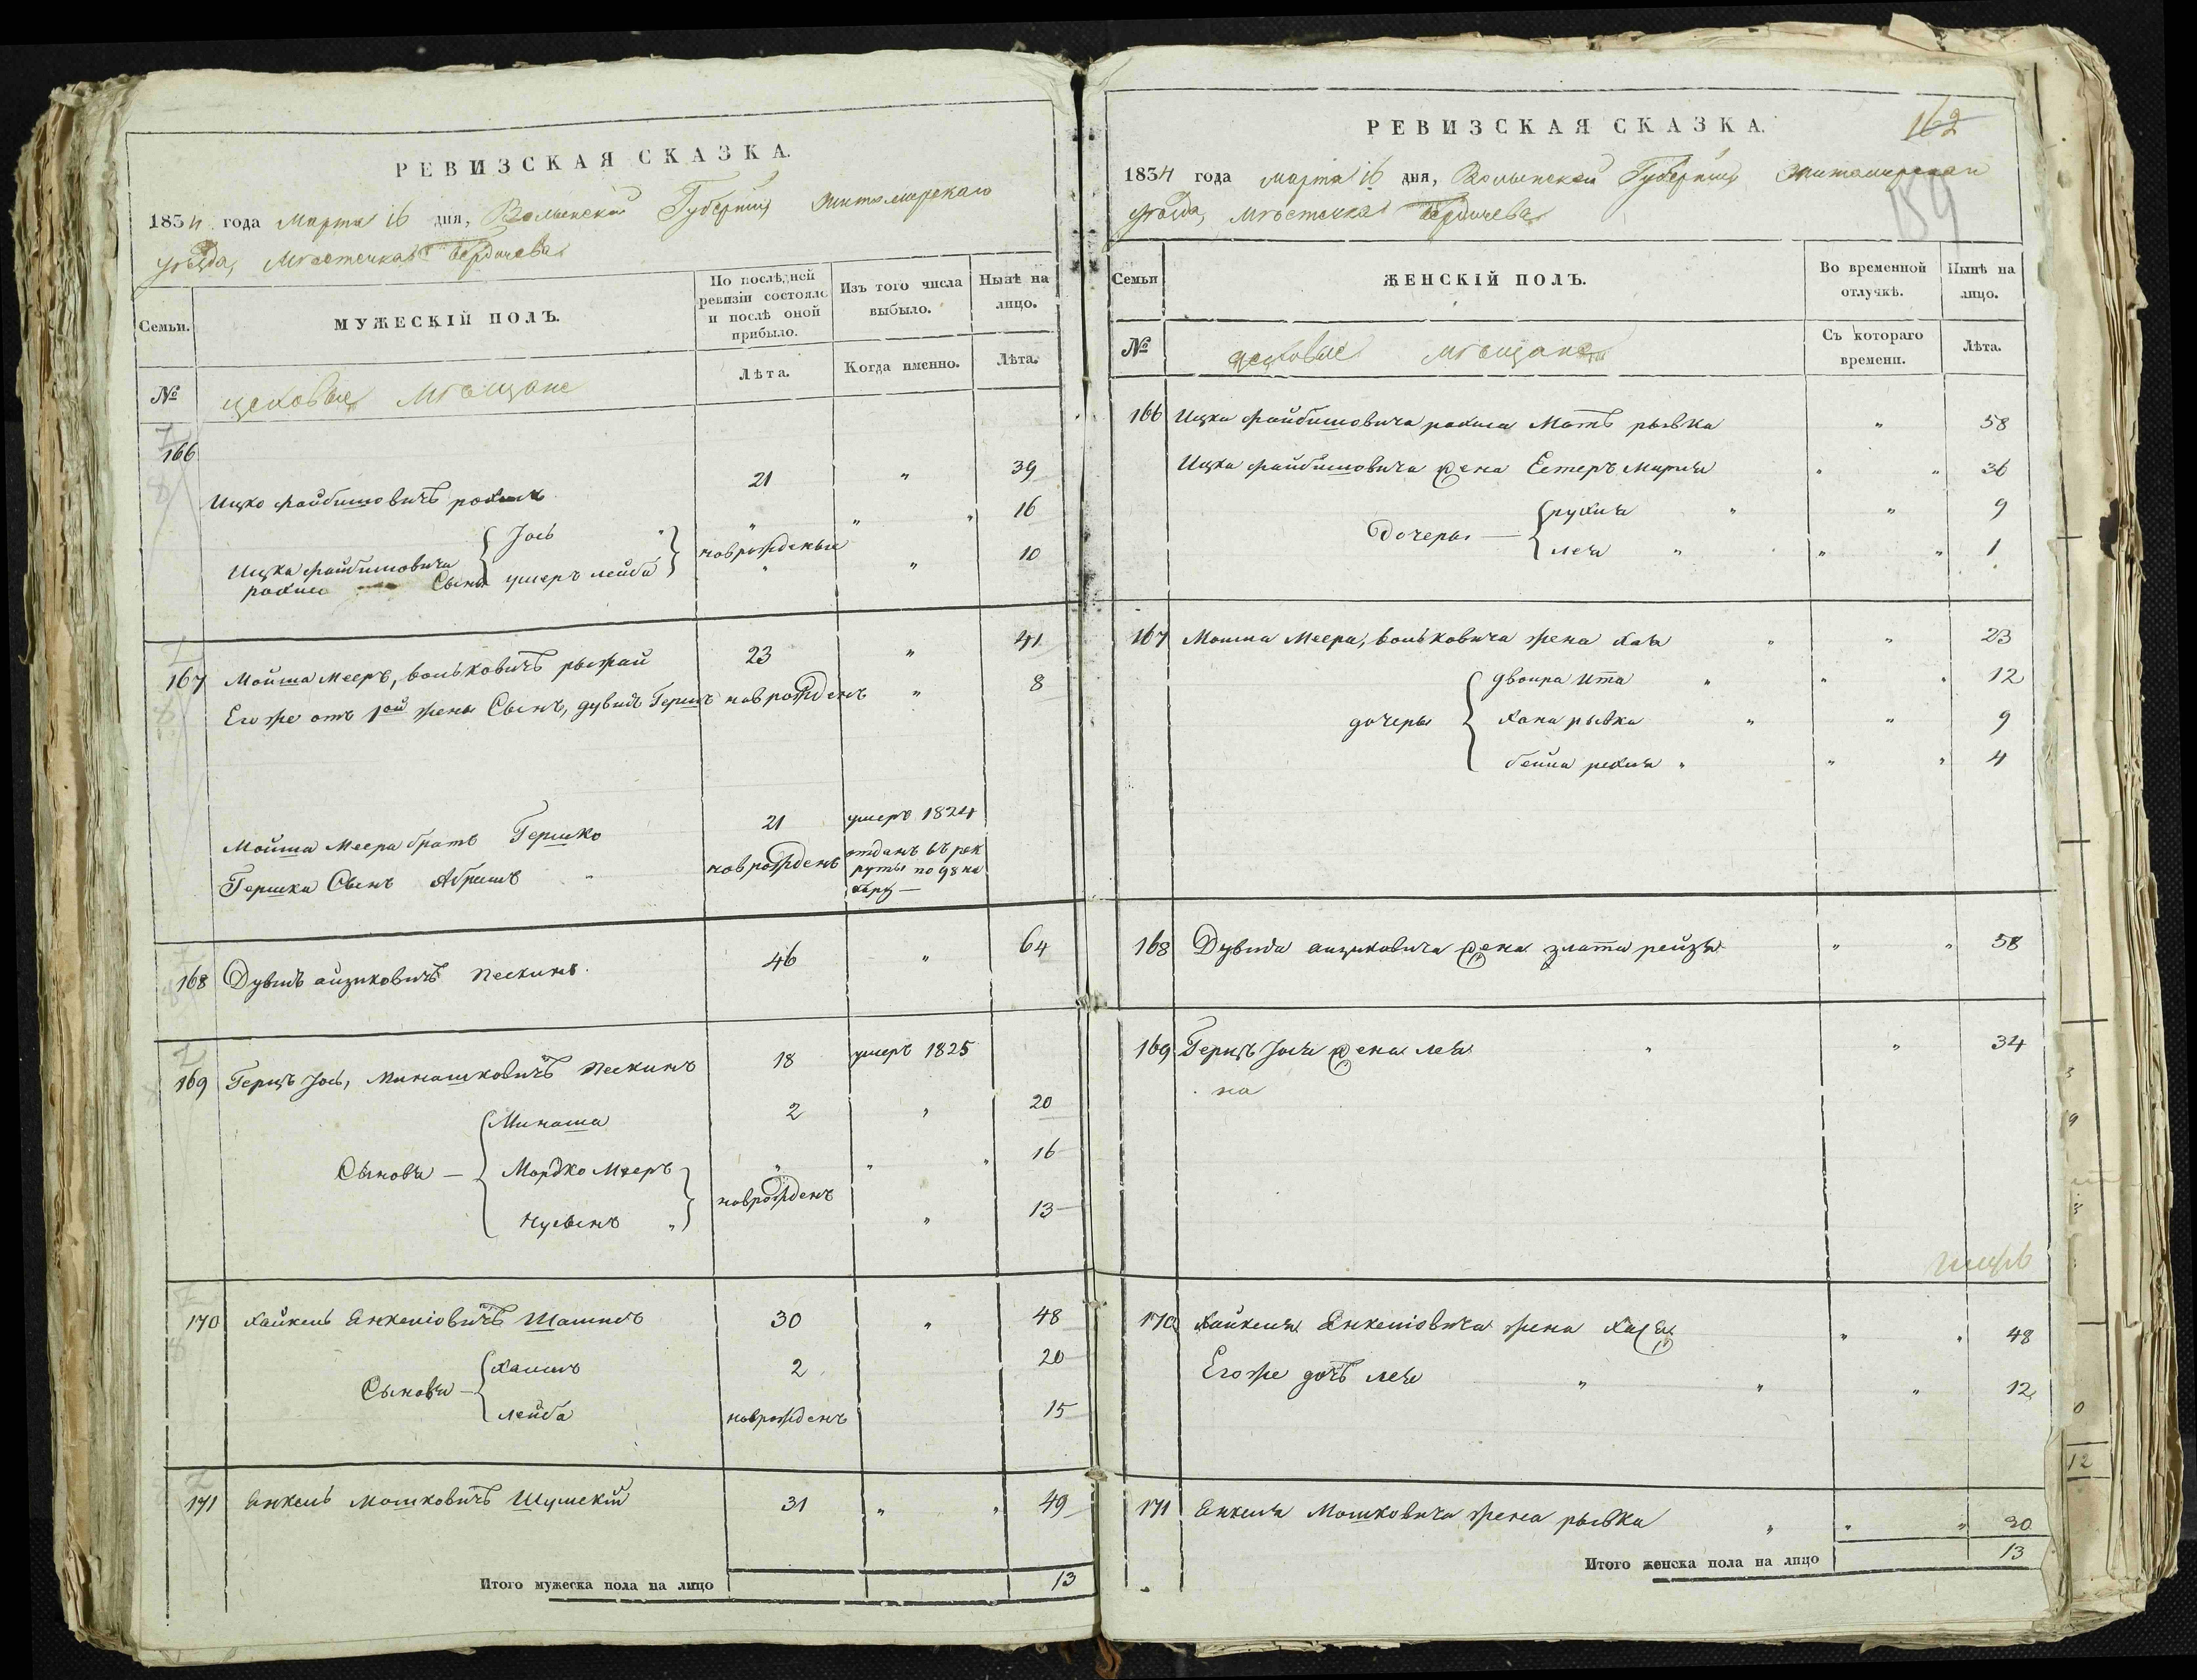 РЕВИЗСКАЯ СКАЗКА.
1834 года Марта 16 дня, Волынской Губерніи Житомирскаго
уѣзда, Мѣстечка Бердичева
Семьи.
МУЖЕСКІЙ ПОЛЪ.
По послѣдней ревизіи состояло и послѣ оной прибыло.
Изъ того числа выбыло.
Нынѣ на лицо.
№
цеховые Мѣщане
Лѣта.
Когда именно.
Лѣта.
166
Ицко файбишовичъ 21 " 39
Іось " " " 16
Ицка файбишовича Сыны новрожденые
умеръ лейба " " 10
167 Мойша Мееръ, вольковичъ рыжай 23 " 41
Его же отъ 1ой жены Сынъ, дувидъ Гершъ новрожденъ " 8
Мойша Меера братъ Гершко 21 умеръ 1824
Гершка Сынъ Абрамъ " новрожденъ отданъ въ рек
руты по 98 на
168 Дувидъ айзиковичъ Пескинъ 46 " 64
169 Герцъ Іось, Минашковичъ Пескинъ 18 умеръ 1825
Минаша 2 " 20
Сыновья — Мордко Мееръ " " " 16
новрожденъ
Нусынъ " " 13
170 Хайкель Енкеліовичъ 30 " 48
Хаимъ 2 20
Сыновья —
лейба новрожденъ 15
171 Енкель Мошковичъ Шумскій 31 " " 49
Итого мужеска пола на лицо 13
РЕВИЗСКАЯ СКАЗКА.
162
189
1834 года марта 16 дня, Волынской Губерніи Житомирскаго
уѣзда, мѣстечка Бердичева
Семьи
ЖЕНСКІЙ ПОЛЪ.
Во временной отлучкѣ.
Нынѣ на лицо.
№
цеховые мѣщане
Съ котораго времени.
Лѣта.
166 Ицка файбишовича Мать рывка " 58
Ицка файбишовича жена Естеръ Маріля " " 36
рухля " " 9
Дочеры —
лея " " " 1
167 Мошка Меера, вольковича жена хая " " 23
двойра Ита " " " 12
дочеры хана рывка " " 9
бейла рехля " " " 4
168 Дувида аизиковича жена злата рейзя " " 58
169 Герцъ Іося жена лея " " 34
на
170 Хайкеля Енкеліовича жена хася " " 48
Его же дочь лея " " " 12
171 Енкеля Мошковича жена рывка " " " 30
Итого женска пола на лицо 13